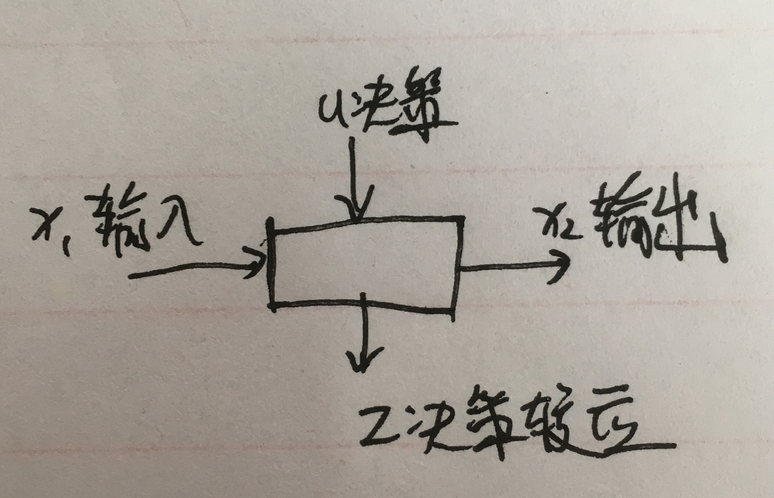 u决策
x₁ 输入
x₂ 输出
Z决策效应